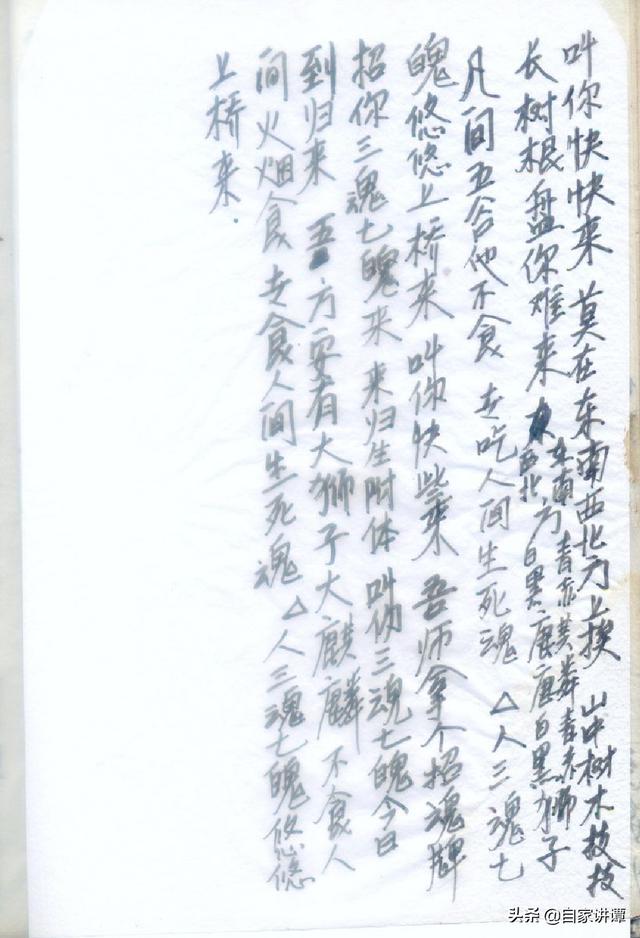 叫你快快来 莫在东南西北方上挨 山中树木枝枝
长树根盘你难来 东南 青赤 麒麟青赤狮
西北方 白黑 麒麟白黑狮子
凡间五谷他不食 专吃人间生死魂 △人三魂七
魄悠悠上桥来 叫你快些来 吾师拿个招魂牌
招你三魂七魄来 来归生附体 叫你三魂七魄今日
到归来 吾方安有大狮子大麒麟 不食人
间火烟食 专食人间生死魂 △人三魂七魄悠悠
上桥来.
头条 @自家讲谭